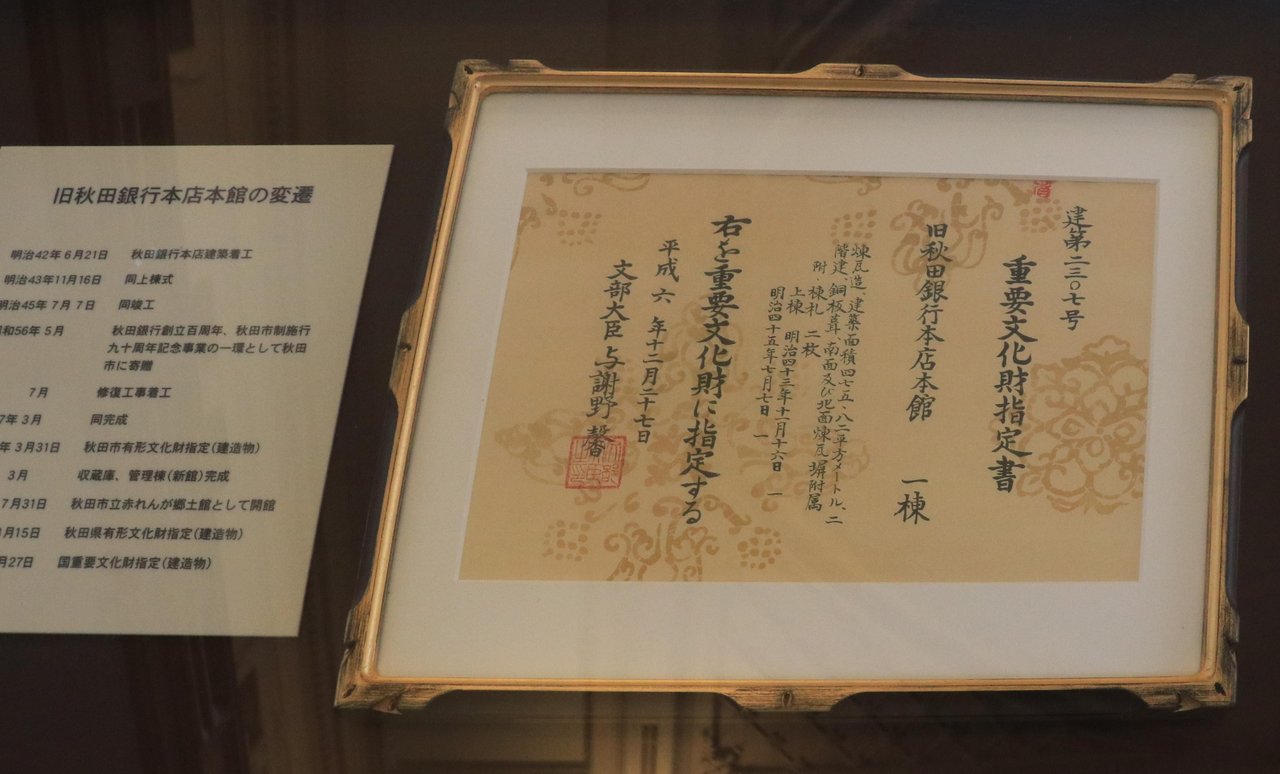 旧秋田銀行本店本館の変遷
明治42年6月21日 秋田銀行本店建築着工
明治43年11月16日 同上棟式
明治45年7月7日 同竣工
和56年5月 秋田銀行創立百周年、秋田市制施行
九十周年記念事業の一環として秋田
市に寄贈
7月 修復工事着工
7年3月 同完成
年3月31日 秋田市有形文化財指定(建造物)
3月 収蔵庫、管理棟(新館)完成
7月31日 秋田市立赤れんが郷土館として開館
月15日 秋田県有形文化財指定(建造物)
月27日 国重要文化財指定(建造物)
建第二三〇七号
重要文化財指定書
旧秋田銀行本店本館 一棟
煉瓦造、建築面積四七五・八二平方メートル、二
階建、銅板葺、南面及び北面煉瓦塀附属
附 棟札 二枚
上棟 明治四十三年十一月十六日 一
明治四十五年七月七日 一
右を重要文化財に指定する
平成六年十二月二十七日
文部大臣 与謝野馨